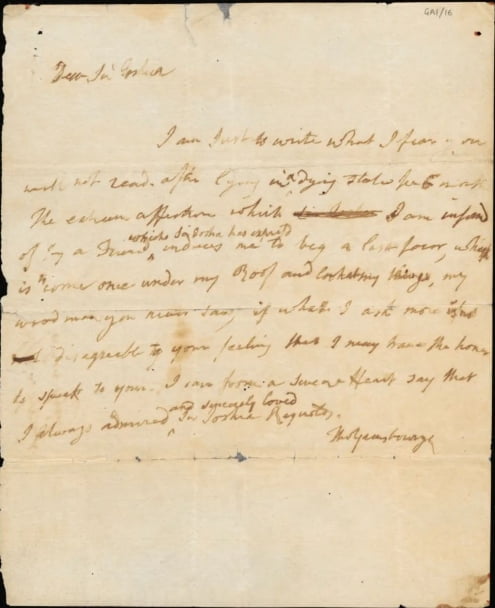 GAI/16
Dear Sir Joshua
I am Just to write what I fear you
will not read. after lying in a dying state for 6 month
The extreem affection which I am informd
of by a Friend which Sir Joshua has expresd induces me to beg a last favor, which
is to come once under my Roof and look at my things, my
woodman you never saw, if what I ask more is not
disagreable to your feeling that I may have the honor
to speak to you. I can from a sincere Heart say that
I always admired and sincerely loved Sir Joshua Reynolds.
Tho Gainsborough